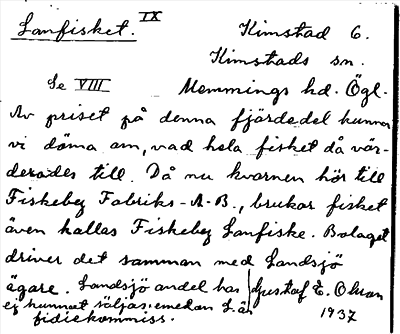 Lanfisket. IX
Kimstad 6.
Kimstads sn.
Se VIII Memmings hd. Ögl.
Av priset på denna fjärdedel kunna
vi döma om, vad hela fisket då vär-
derades till. Då nu kvarnen hör till
Fiskeby Fabriks-A-B., brukar fisket
även kallas Fiskeby Lanfiske. Bolaget
driver det samman med Landsjö
ägare. Landsjö andel har
ej kunnat säljas, emedan L. är
fidiekommiss.
Gustaf E. Ohran
1937